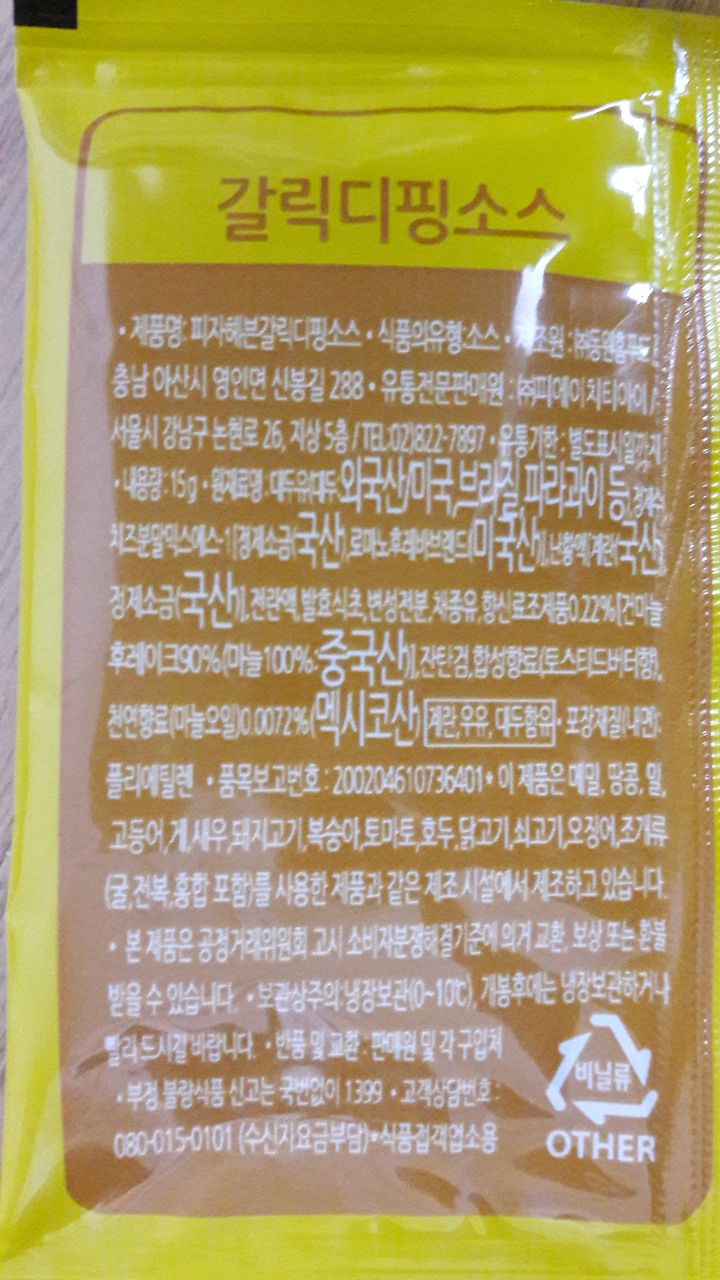 갈릭디핑소스
• 제품명: 피자헤븐갈릭디핑소스 • 식품의유형:소스 • 제조원 : ㈜동원홈푸드/
충남 아산시 영인면 신봉길 288 • 유통전문판매원 : ㈜피에이치티아이 /
서울시 강남구 논현로 26, 지상 5층 / TEL:02)822-7897 • 유통기한 : 별도표시일까지
• 내용량 : 15g • 원재료명 : 대두유[대두:외국산/미국,브라질,파라과이 등], 정제수
치즈분말믹스에스-1[정제소금(국산),로마노후레바브렌드(미국산)],난황액[계란(국산),
정제소금(국산)],전란액,발효식초,변성전분,채종유,향신료조제품0.22%[건마늘
후레이크90%(마늘100%:중국산)],잔탄검,합성향료(토스티드버터향),
천연향료(마늘오일)0.0072%(멕시코산) 계란,우유, 대두함유 • 포장재질(내면):
폴리에틸렌 • 품목보고번호 : 200204610736401• 이 제품은 메밀, 땅콩, 밀,
고등어,게,새우,돼지고기,복숭아,토마토,호두,닭고기,쇠고기,오징어,조개류
(굴,전복,홍합 포함)를 사용한 제품과 같은 제조 시설에서 제조하고 있습니다.
• 본 제품은 공정거래위원회 고시 소비자분쟁해결기준에 의거 교환, 보상 또는 환불
받을 수 있습니다. • 보관상주의:냉장보관(0~10℃), 개봉후에는 냉장보관하거나
빨리 드시길 바랍니다. • 반품 및 교환 : 판매원 및 각 구입처
• 부정 불량식품 신고는 국번없이 1399 • 고객상담번호 :
080-015-0101 (수신자요금부담)•식품접객업소용
비닐류
OTHER